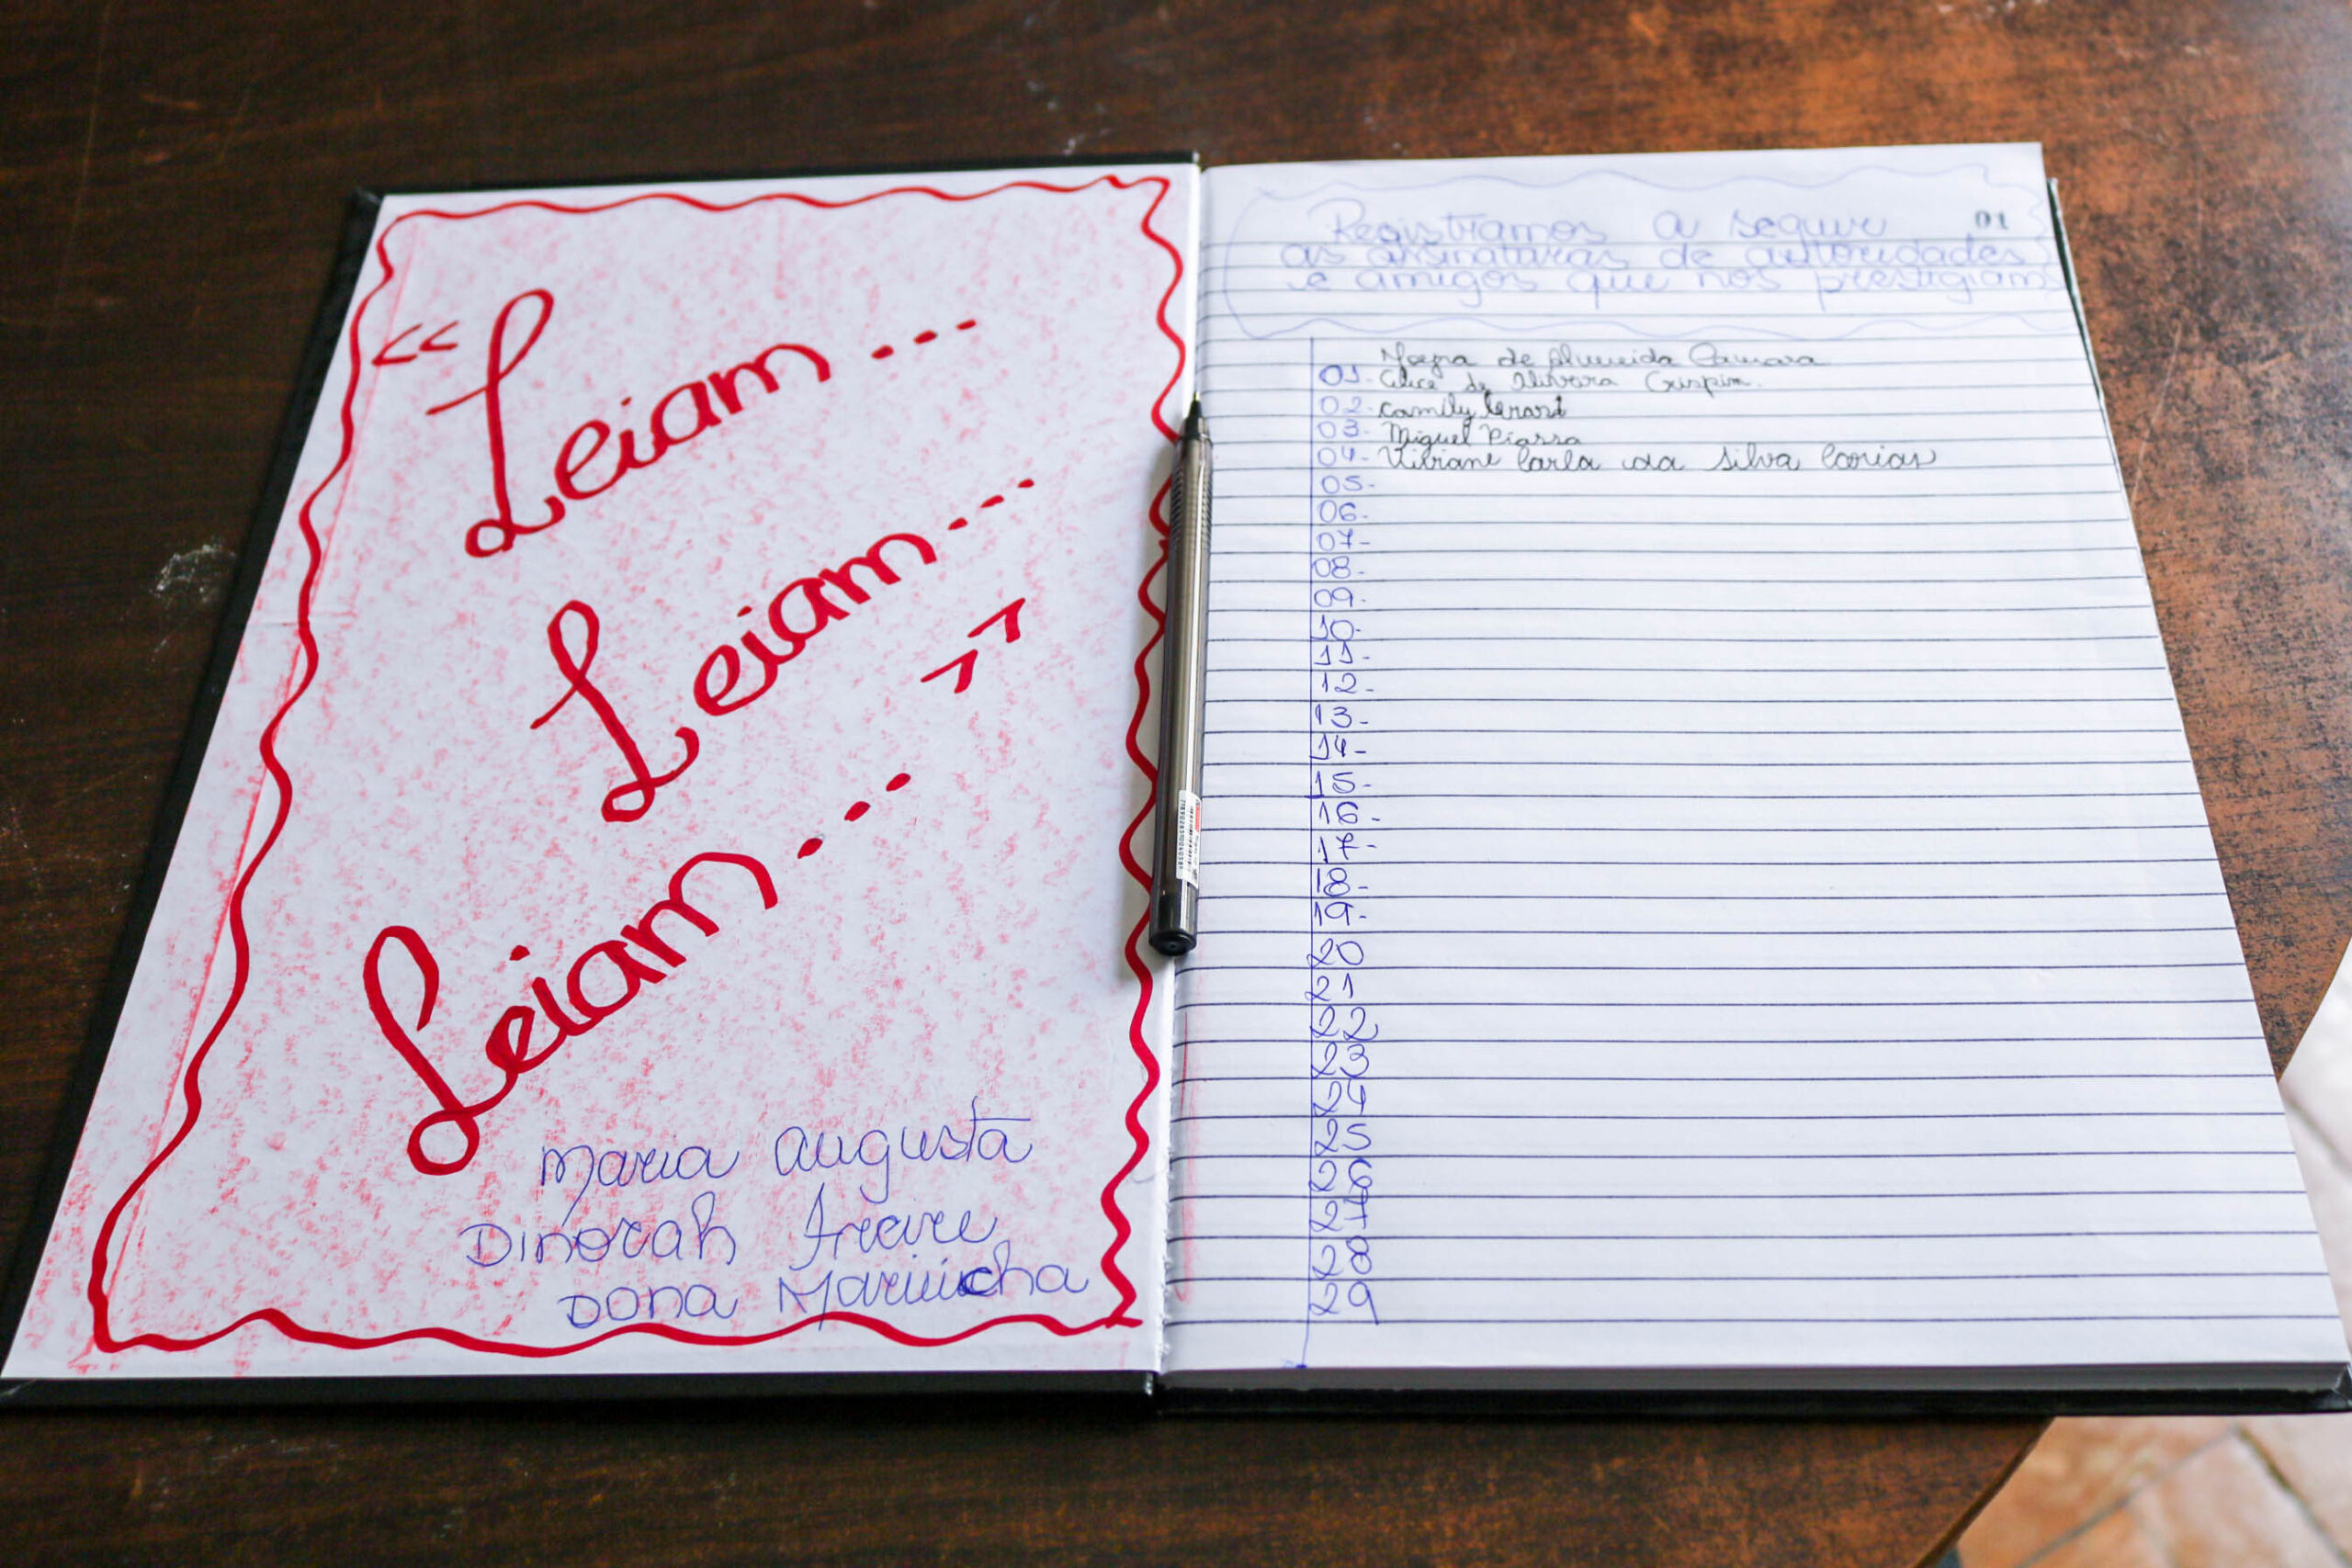 “Leiam...
Leiam...”
Leiam...
Maria Augusta
Dinorah Freire
Dona Mariucha
Registramos a seguir 01
as assinaturas de autoridades
e amigos que nos prestigiam
de Almeida Camara
01- Alice de Oliveira Crispim.
02- Camily
03- Miguel Piassa
04- Viviane Carla da Silva
05-
06-
07-
08-
09-
10-
11-
12-
13-
14-
15-
16-
17-
18-
19-
20
21
22
23
24
25
26
27
28
29